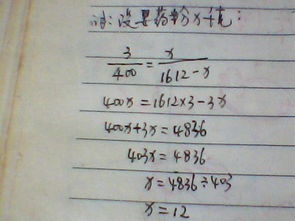 解:设要药粉x千克:
3/400 = x/1612-x
400x=1612×3-3x
400x+3x=4836
403x=4836
x=4836÷403
x=12